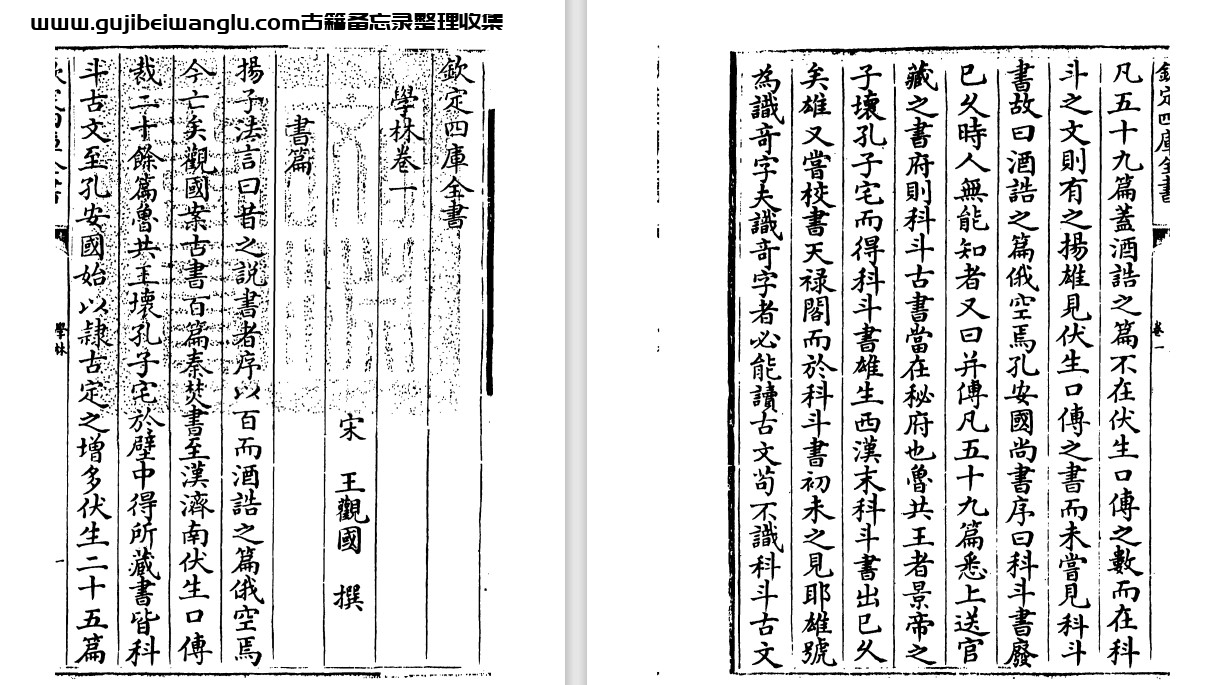 www.gujibeiwanglu.com古籍备忘录整理收集
欽定四庫全書
學林卷一
宋 王觀國 撰
書篇
揚子法言曰昔之説書者序以百而酒誥之篇俄空焉
今亡矣觀國案古書百篇秦焚書至漢濟南伏生口傳
裁二十餘篇魯共王壞孔子宅於壁中得所藏書皆科
斗古文至孔安國始以隷古定之増多伏生二十五篇
學林
一
欽定四庫全書
卷一
凡五十九篇蓋酒誥之篇不在伏生口傳之數而在科
斗之文則有之揚雄見伏生口傳之書而未嘗見科斗
書故曰酒誥之篇俄空焉孔安國尚書序曰科斗書廢
已久時人無能知者又曰并傳凡五十九篇悉上送官
藏之書府則科斗古書當在秘府也魯共王者景帝之
子壞孔子宅而得科斗書雄生西漢末科斗書出已久
矣雄又嘗校書天禄閣而於科斗書初未之見耶雄號
為識竒字夫識竒字者必能讀古文茍不識科斗古文